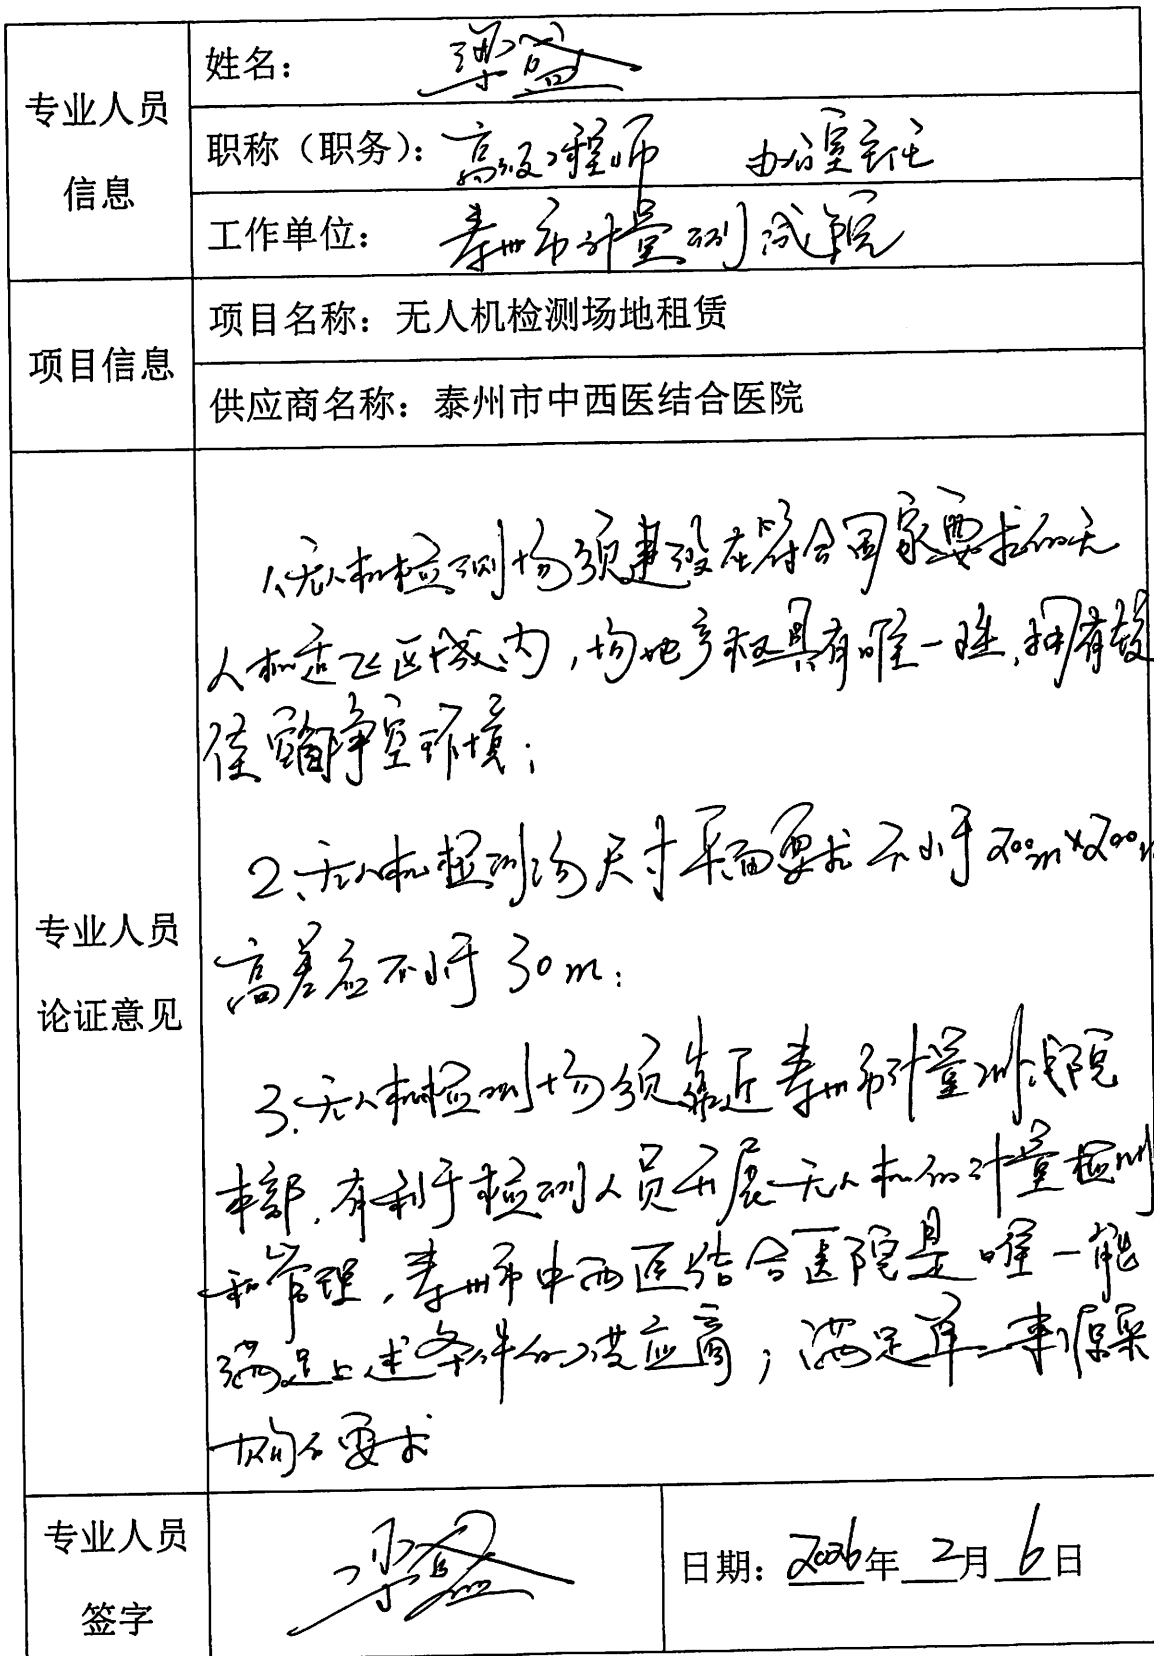 专业人员
信息
姓名：梁盛
职称（职务）：高级工程师 办公室主任
工作单位：泰州市计量测试院
项目信息
项目名称：无人机检测场地租赁
供应商名称：泰州市中西医结合医院
专业人员
论证意见
1、无人机检测场须建设在符合国家要求的无
人机适飞区域内，场地产权具有唯一性，拥有较
佳净空环境；
2、无人机检测场尺寸平面要求不小于200m×200m
高差应不小于30m；
3、无人机检测场须靠近泰州市计量测试院
本部，有利于检测人员开展无人机的计量检测
和管理，泰州市中西医结合医院是唯一能
满足上述条件的供应商，满足单一来源采
购的要求
专业人员
签字
梁盛
日期：2026年2月6日